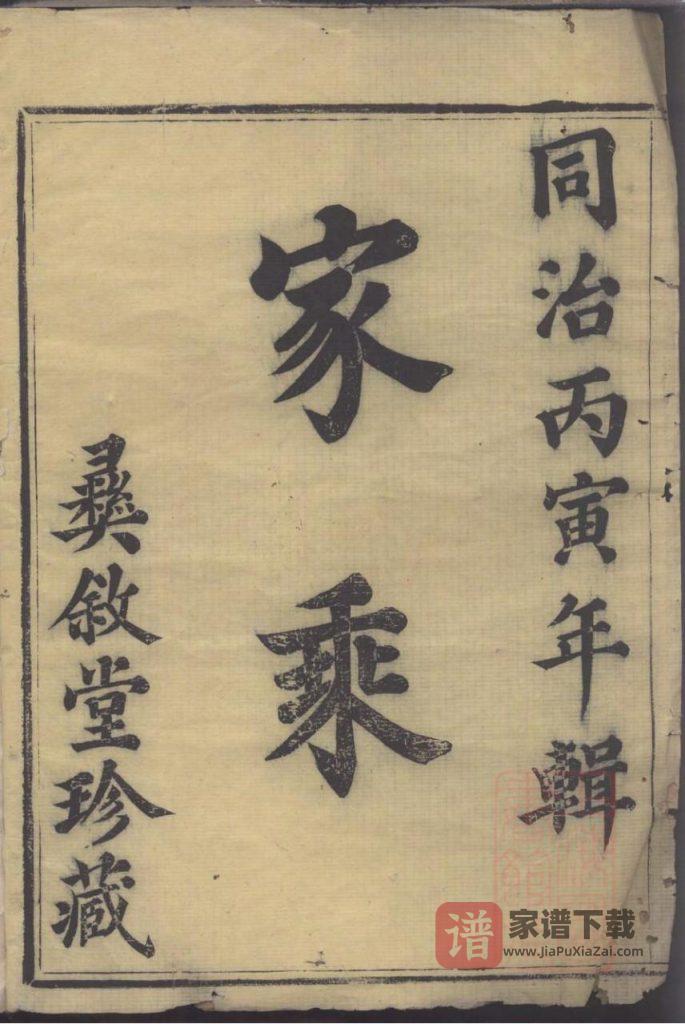 同治丙寅年輯
家乘
彝敘堂珍藏
谱
家谱下载
www.JiaPuXiaZai.com